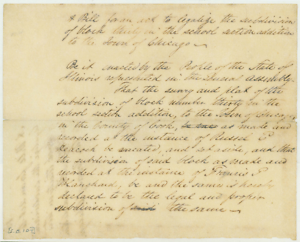 A Bill for an act to legalize the subdivision
of block thirty in the school section addition
to the town of Chicago.
Be it enacted by the People of the State of
Illinois represented in the General Assembly
That the survey and plat of the
subdivision of block number thirty in the
school section addition, to the town of Chicago
in the County of Cook, as made and
recorded at the instance of
be vacated, and set aside, and that
the subdivision of said block as made and
recorded at the instance of Francis P
be and the same is hereby
declared to be the legal and proper
subdivision of the same